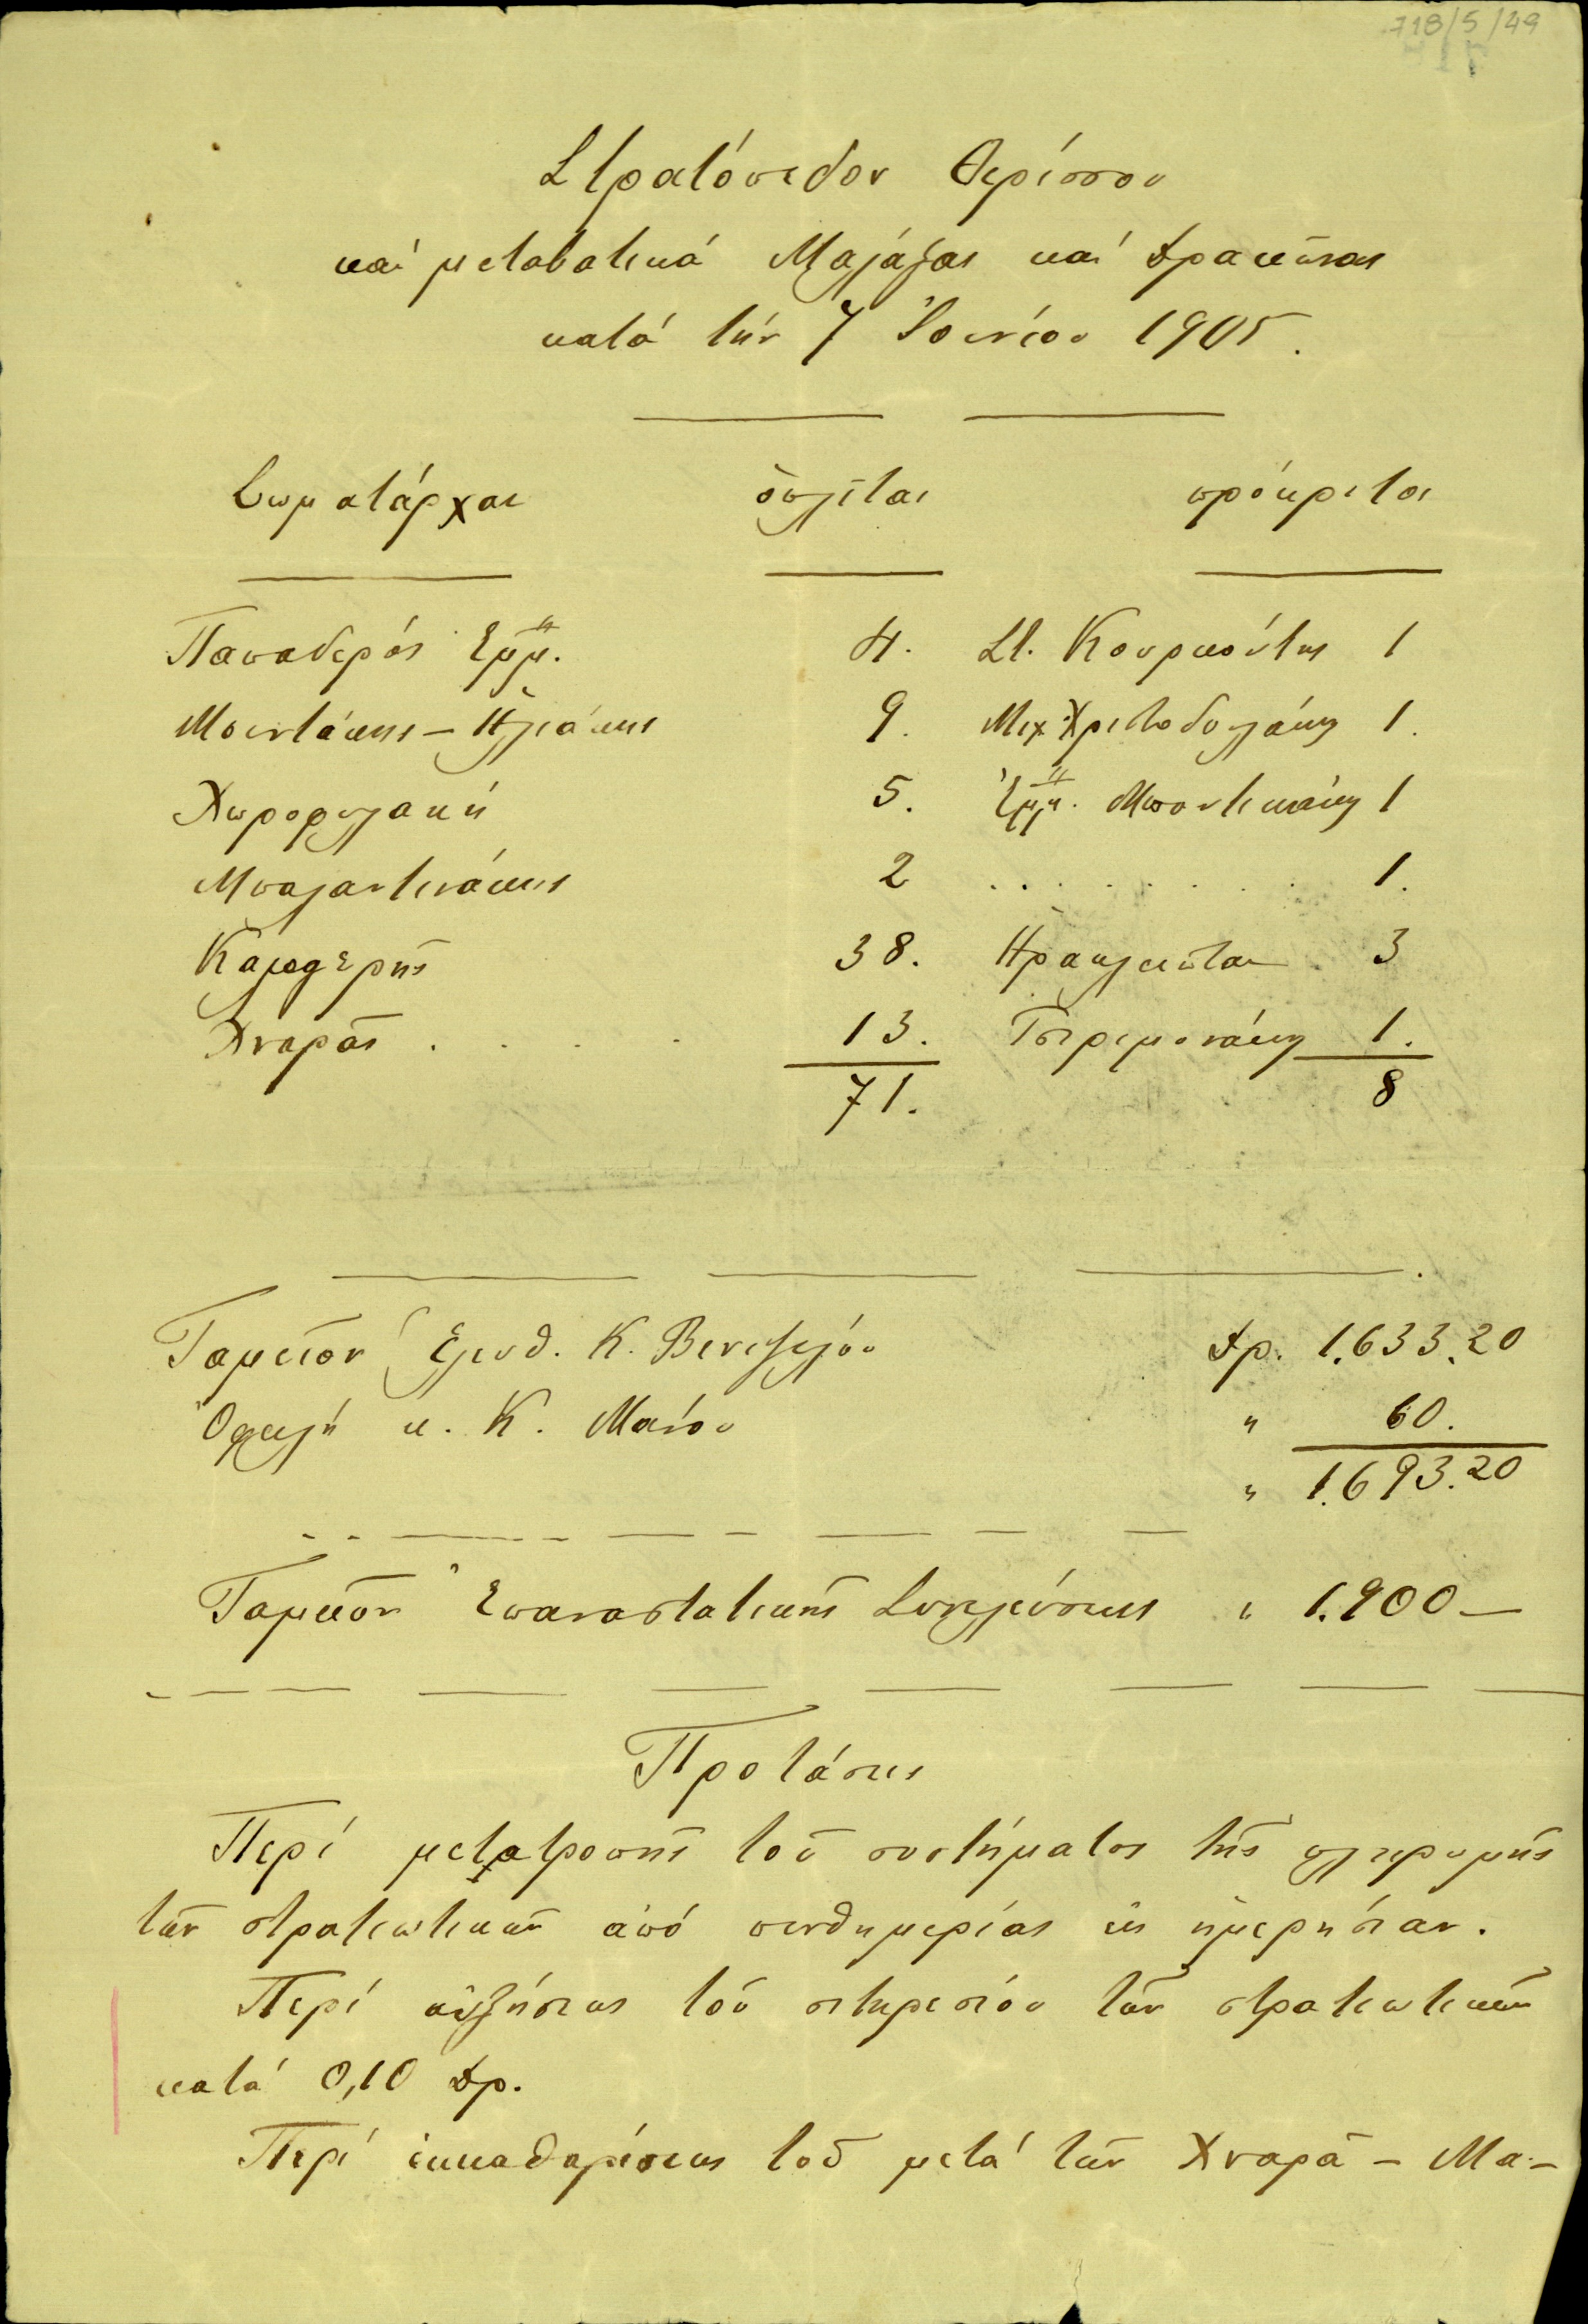 718/5/49
Στρατόπεδον Θερίσσου
καὶ μεταβατικά Μαλάξας καί Δρακώνας
κατά τήν 7 Ἰουνίου 1905.
Σωματάρχαι ὁπλῖται πρόκριτοι
Παπαδερός Ἐμμ. 4. Στ. Κουρκούτης 1
Μουντάκης - Ἠλιάκης 9. Μιχ. Χριστοδουλάκης 1.
Χωροφυλακή 5. Ἐμμ. 1
Μπαλαντινάκης 2 . . . . . . . . 1.
Καλογερής 38. Ἡρακλειῶται 3
Χναρᾶς . . . . 13. Τσιριμονάκης 1.
71. 8
Ταμεῖον Ἐλευθ. Κ. Βενιζέλου Δρ. 1.633.20
Ὀφειλή κ. Κ. Μάνου " 60.
" 1.693.20
Ταμεῖον Ἐπαναστατικῆς Συνελεύσεως " 1.900—
Προτάσεις
Περί μετατροπῆς τοῦ συστήματος τῆς πληρωμῆς
τῶν στρατιωτικῶν ἀπό πενθημερίας εἰς ἡμερησίαν.
Περί αὐξήσεως τοῦ σιτηρεσίου τῶν στρατιωτικῶν
κατά 0,10 Δρ.
Περί ἐκκαθαρίσεως τοῦ μετά τῶν Χναρᾶ - Μα-